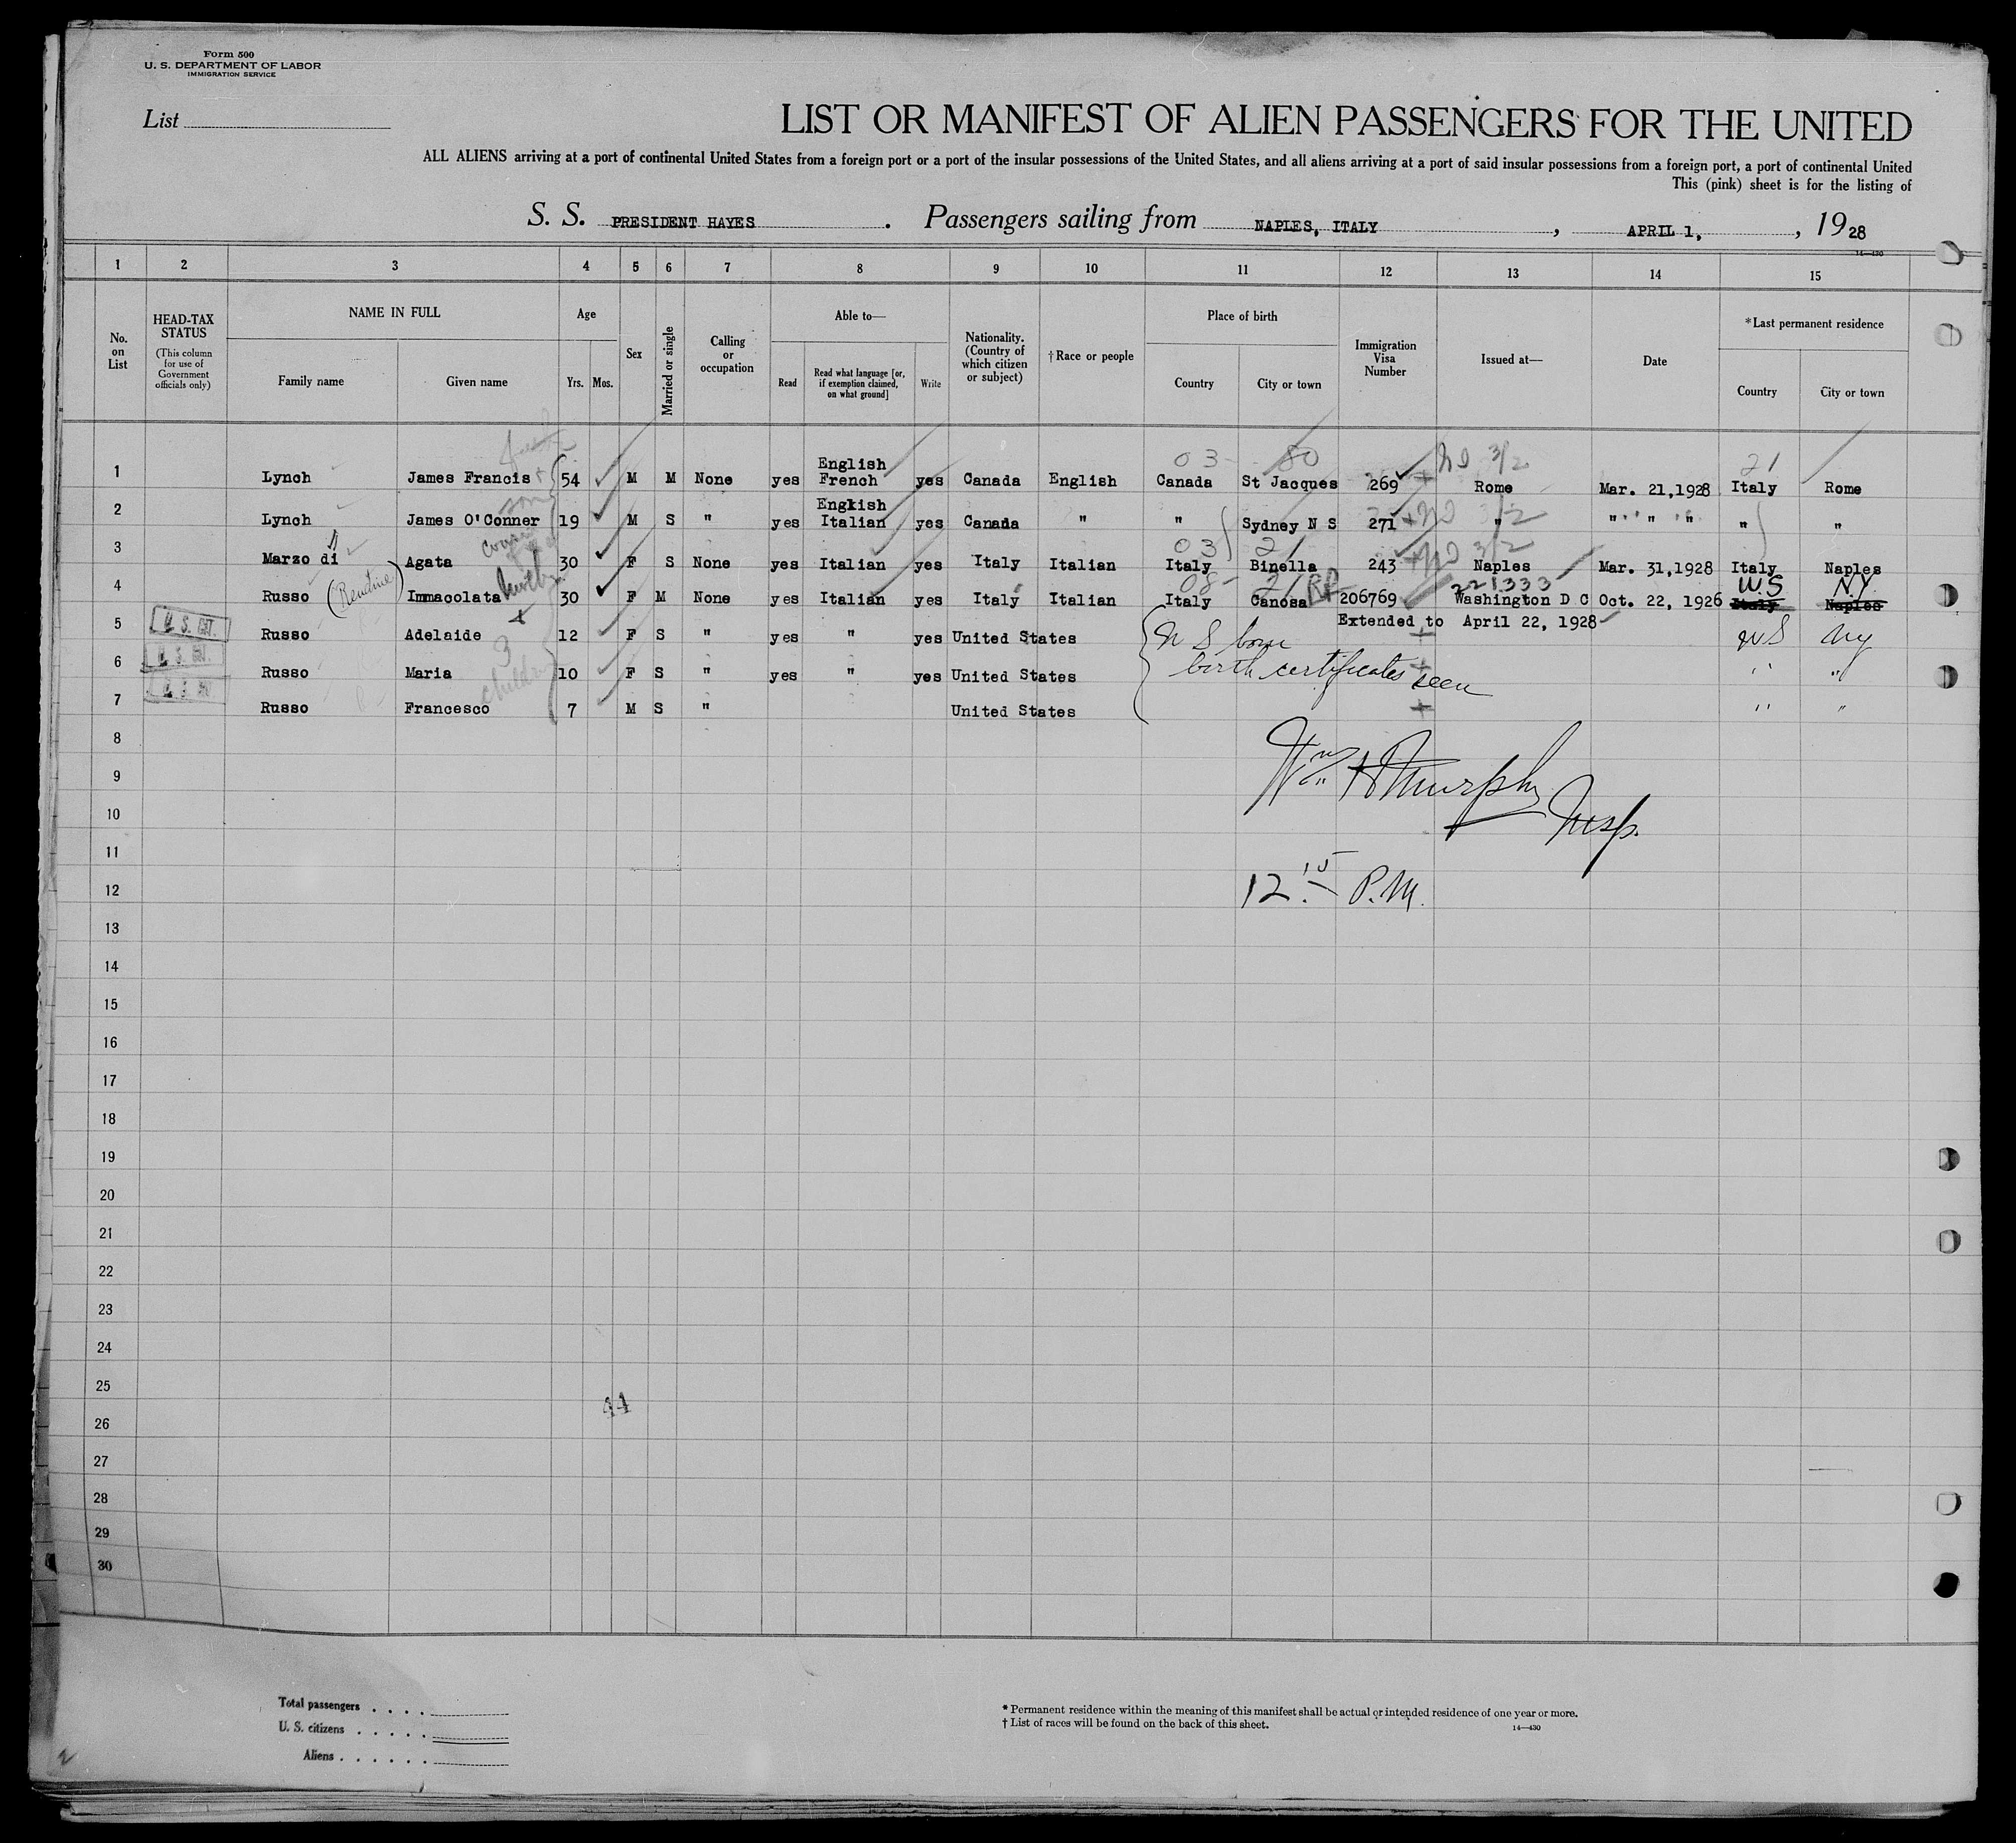 Form 500
U. S. DEPARTMENT OF LABOR
IMMIGRATION SERVICE
List
LIST OR MANIFEST OF ALIEN PASSENGERS FOR THE UNITED
ALL ALIENS arriving at a port of continental United States from a foreign port or a port of the insular possessions of the United States, and all aliens arriving at a port of said insular possessions from a foreign port, a port of continental United
This (pink) sheet is for the listing of
S. S. PRESIDENT HAYES . Passengers sailing from NAPLES, ITALY , APRIL 1, , 1928
14—430
1 2 3 4 5 6 7 8 9 10 11 12 13 14 15
No. on List
HEAD-TAX STATUS
(This column for use of Government officials only)
NAME IN FULL
Family name
Given name
Age
Yrs.
Mos.
Sex
Married or single
Calling or occupation
Able to—
Read
Read what language [or, if exemption claimed, on what ground]
Write
Nationality. (Country of which citizen or subject)
† Race or people
Place of birth
Country
City or town
Immigration Visa Number
Issued at—
Date
*Last permanent residence
Country
City or town
03 80 ND 3/2 21
1 Lynch James Francis 54 M M None yes English French yes Canada English Canada St Jacques 269 Rome Mar. 21,1928 Italy Rome
son
2 Lynch James O'Conner 19 M S " yes Engkish Italian yes Canada " " Sydney N S 271 ND 3/2 " " " " " "
03 21 ND 3/2
3 Marzo di Agata 30 F S None yes Italian yes Italy Italian Italy Binella 243 Naples Mar. 31,1928 Italy Naples
08 21 RP 221333 U.S N.Y.
4 Russo (Rendine) Immacolata 30 F M None yes Italian yes Italy Italian Italy Canosa 206769 Washington D C Oct. 22, 1926 Italy Naples
Extended to April 22, 1928
5 U. S. CIT. Russo Adelaide 12 F S " yes " yes United States U S born U S N Y
6 U. S. CIT. Russo Maria 3 children 10 F S " yes " yes United States birth certificates seen " "
7 Russo Francesco 7 M S " United States " "
8
Wm H Murphy Insp.
9
10
11
12 12.15 P.M.
13
14
15
16
17
18
19
20
21
22
23
24
25
44
26
27
28
29
30
Total passengers
U. S. citizens
Aliens
* Permanent residence within the meaning of this manifest shall be actual or intended residence of one year or more.
† List of races will be found on the back of this sheet.
14—430